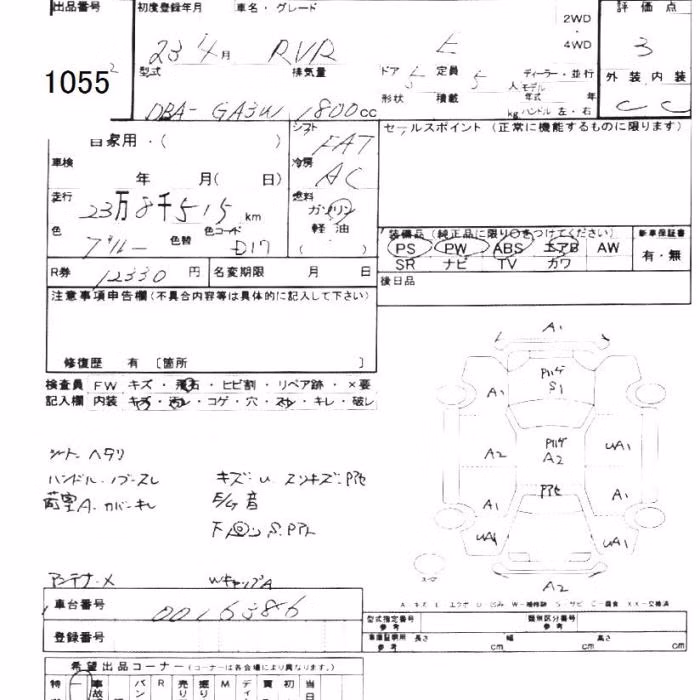 出品番号 初度登録年月 車名・グレード 2WD ・ 4WD 評価点
1055 23 4月 RVR E 3
型式 排気量 ドア 5 定員 5人 ディーラー・並行 外装 内装
形状 積載 kg モデル年式 年 ハンドル 左・右
DBA- GA3W 1800cc C C
自家用・( ) シフト FAT セールスポイント (正常に機能するものに限ります)
車検 年 月( 日) 冷房 AC
走行 23万8千515km 燃料 ガソリン 軽油 ( )
色 ブルー 色替 色コード D17
装備品 (純正品に限り○をつけてください) 新車保証書
PS PW ABS エアB AW 有・無
SR ナビ TV カワ
R券 12330円 名変期限 月 日 後日品
注意事項申告欄(不具合内容等は具体的に記入して下さい)
修復歴 有 [箇所 ]
検査員 FW キズ・飛石・ヒビ割・リペア跡・×要
記入欄 内装 キズ・汚レ・コゲ・穴・スレ・キレ・破レ
シート ヘタリ
ハンドル・ノブスレ キズ・U スリキズ・P他
荷室A・カバーキレ E/G 音
アンテナ×  WキャップA
A1
S1
A1
A2 A2 UA1
A1 A1
UA1 UA1
A2
車台番号 0016386
登録番号
型式指定番号 参考 類別区分番号 参考
長さ cm 幅 cm 高さ cm
希望出品コーナー (コーナーは各会場により異なります)